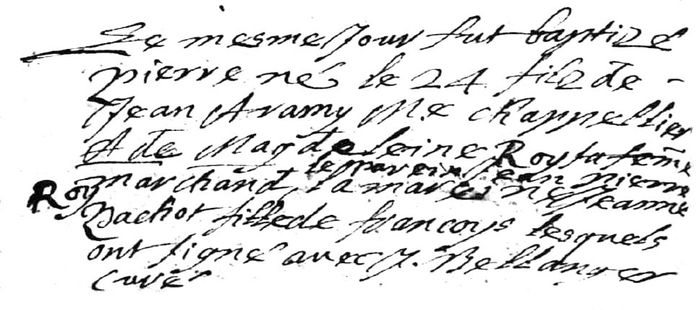 Le mesme Jour fut baptizé
pierre né le 24 filz de
Jean Aramy Me chappellier
Et de Magdeleine Roy sa feme
le parein Jean pierre
Roy marchand, la mareine Jeanne
Bachot fille de francoys lesquels
ont signé avec J. Bellanger
curé